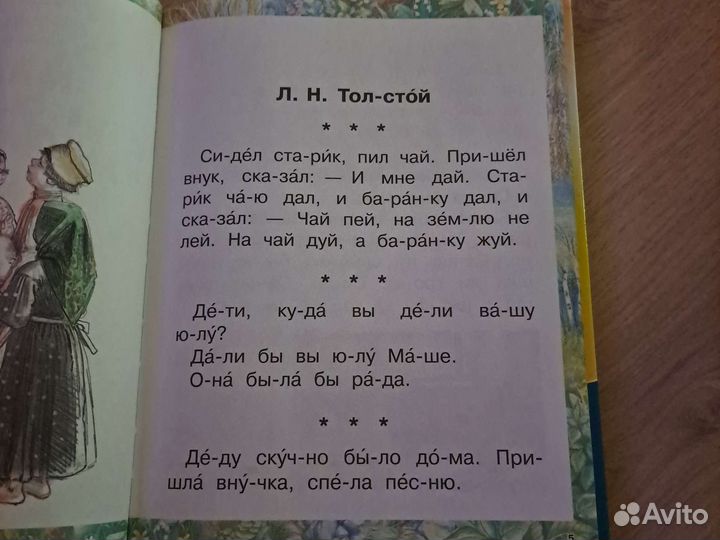 Л. Н. Тол-сто́й
* * *
Си-де́л ста-ри́к, пил чай. При-шёл
внук, ска-за́л: — И мне дай. Ста-
ри́к ча́-ю дал, и ба-ра́н-ку дал, и
ска-за́л: — Чай пей, на зе́м-лю не
лей. На чай дуй, а ба-ра́н-ку жуй.
* * *
Де́-ти, ку-да́ вы де́-ли ва́-шу
ю-лу́?
Да́-ли бы вы ю-лу́ Ма́-ше.
О-на́ бы-ла́ бы ра́-да.
* * *
Де́-ду ску́ч-но бы́-ло до́-ма. При-
шла́ вну́-чка, спе́-ла пе́с-ню.
5
Avito